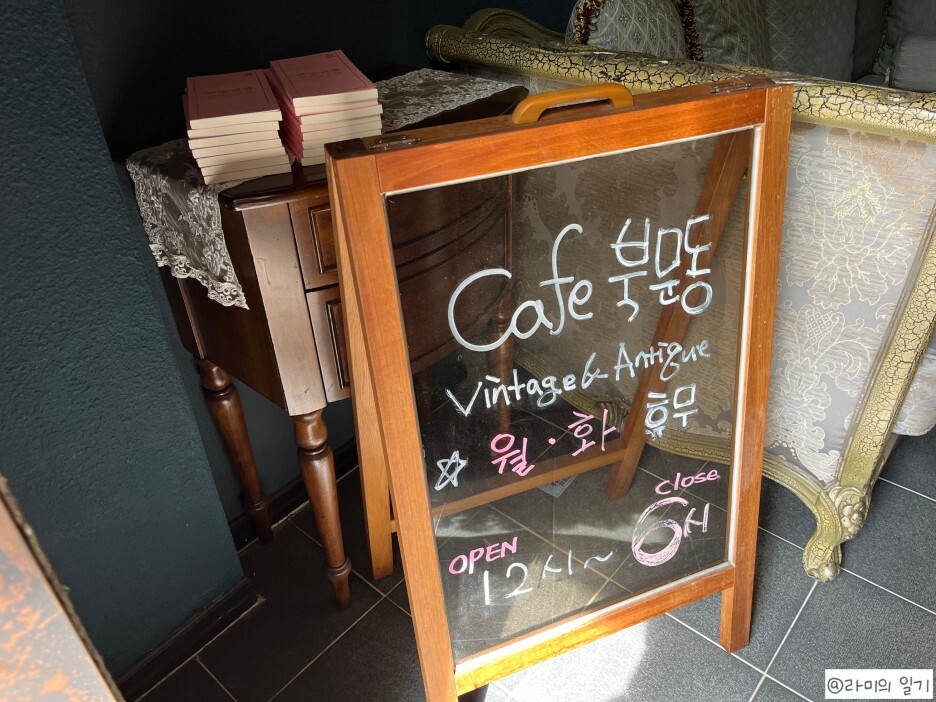 Cafe 북문동
Vintage & Antique
☆ 월·화 휴무
OPEN 12시~
Close 6시
@라미의 일기